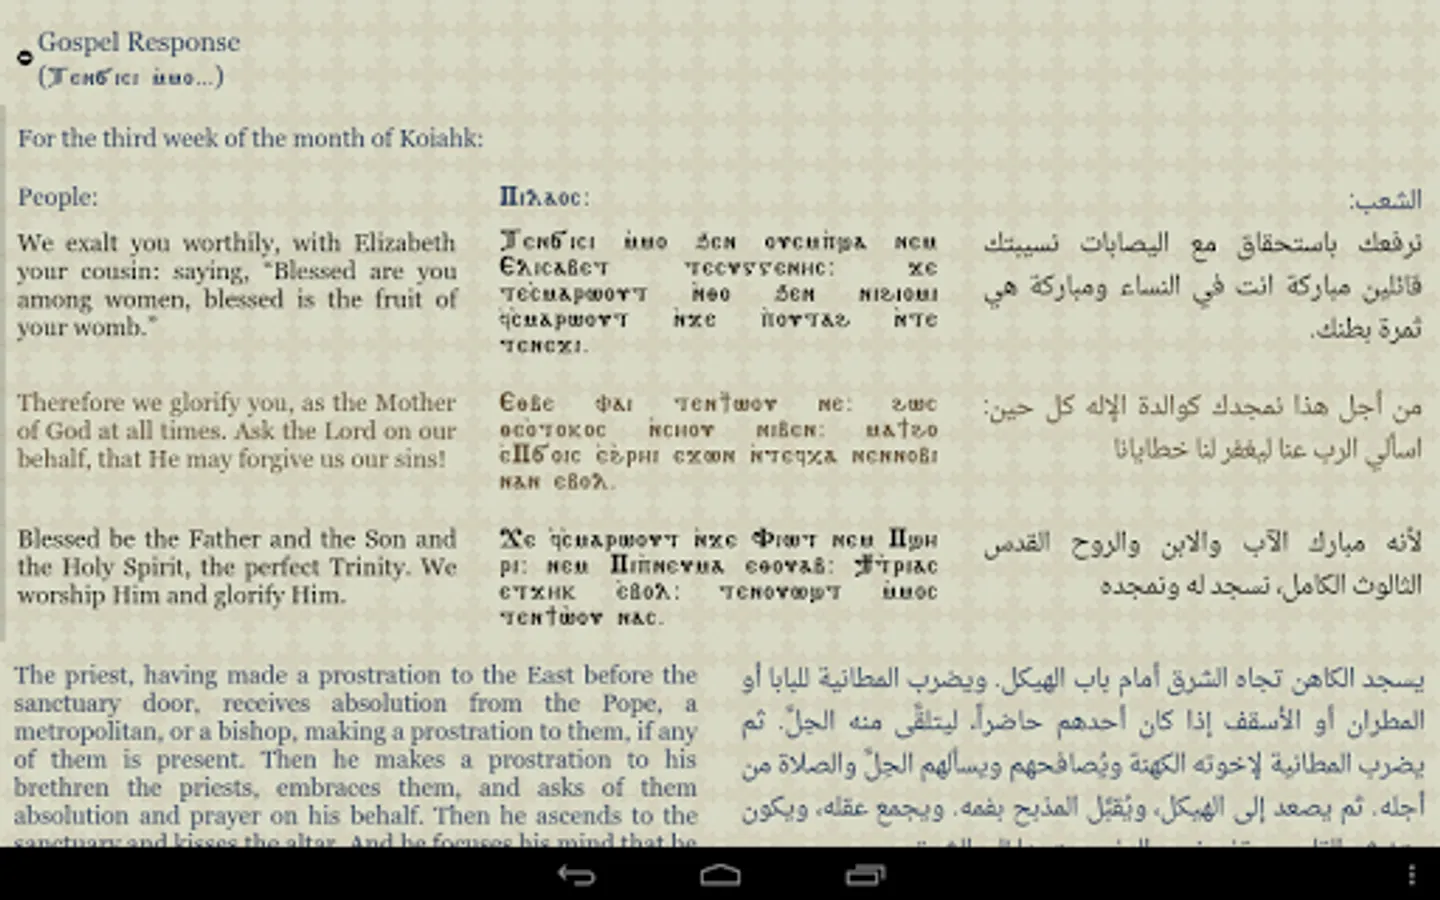 Gospel Response
(Ⲧⲉⲛϭⲓⲥⲓ ⲙ̀ⲙⲟ...)
For the third week of the month of Koiahk:
People:
We exalt you worthily, with Elizabeth
your cousin: saying, "Blessed are you
among women, blessed is the fruit of
your womb."
Ⲡⲓⲗⲁⲟⲥ:
Ⲧⲉⲛϭⲓⲥⲓ ⲙ̀ⲙⲟ ϧⲉⲛ ⲟⲩⲉⲙⲡ̀ϣⲁ ⲛⲉⲙ
Ⲉⲗⲓⲥⲁⲃⲉⲧ ⲧⲉⲥⲩⲅⲅⲉⲛⲏⲥ: ϫⲉ
ⲧⲉⲥ̀ⲙⲁⲣⲱⲟⲩⲧ ⲛ̀ⲑⲟ ϧⲉⲛ ⲛⲓϩⲓⲟⲙⲓ
ϥ̀ⲥⲙⲁⲣⲱⲟⲩⲧ ⲛ̀ϫⲉ ⲡ̀ⲟⲩⲧⲁϩ ⲛ̀ⲧⲉ
ⲧⲉⲛⲉϫⲓ.
الشعب:
نرفعك باستحقاق مع اليصابات نسيبتك
قائلين مباركة انت في النساء ومباركة هي
ثمرة بطنك.
Therefore we glorify you, as the Mother
of God at all times. Ask the Lord on our
behalf, that He may forgive us our sins!
Ⲉⲑⲃⲉ ⲫⲁⲓ ⲧⲉⲛϯⲱⲟⲩ ⲛⲉ: ϩⲱⲥ
ⲑⲉⲟ̀ⲧⲟⲕⲟⲥ ⲛ̀ⲥⲏⲟⲩ ⲛⲓⲃⲉⲛ: ⲙⲁϯϩⲟ
ⲉ̀Ⲡϭⲟⲓⲥ ⲉ̀ϩ̀ⲣⲏⲓ ⲉϫⲱⲛ ⲛ̀ⲧⲉϥⲭⲁ ⲛⲉⲛⲛⲟⲃⲓ
ⲛⲁⲛ ⲉⲃⲟⲗ.
من أجل هذا نمجدك كوالدة الإله كل حين:
اسألي الرب عنا ليغفر لنا خطايانا
Blessed be the Father and the Son and
the Holy Spirit, the perfect Trinity. We
worship Him and glorify Him.
Ϫⲉ ϥ̀ⲥⲙⲁⲣⲱⲟⲩⲧ ⲛ̀ϫⲉ Ⲫⲓⲱⲧ ⲛⲉⲙ Ⲡϣⲏ
ⲣⲓ: ⲛⲉⲙ Ⲡⲓⲡ̀ⲛⲉⲩⲙⲁ ⲉⲑⲟⲩⲁⲃ: Ϯⲧ̀ⲣⲓⲁⲥ
ⲉⲧϫⲏⲕ ⲉ̀ⲃⲟⲗ: ⲧⲉⲛⲟⲩⲱϣⲧ ⲙ̀ⲙⲟⲥ
ⲧⲉⲛϯⲱ̀ⲟⲩ ⲛⲁⲥ.
لأنه مبارك الآب والابن والروح القدس
الثالوث الكامل، نسجد له ونمجده
The priest, having made a prostration to the East before the
sanctuary door, receives absolution from the Pope, a
metropolitan, or a bishop, making a prostration to them, if any
of them is present. Then he makes a prostration to his
brethren the priests, embraces them, and asks of them
absolution and prayer on his behalf. Then he ascends to the
sanctuary and kisses the altar. And he focuses his mind that he
يسجد الكاهن تجاه الشرق أمام باب الهيكل. ويضرب المطانية للبابا أو
المطران أو الأسقف إذا كان أحدهم حاضراً، ليتلقَّى منه الحِلَّ. ثم
يضرب المطانية لإخوته الكهنة ويُصافحهم ويسألهم الحِلَّ والصلاة من
أجله. ثم يصعد إلى الهيكل، ويُقبِّل المذبح بفمه. ويجمع عقله، ويكون